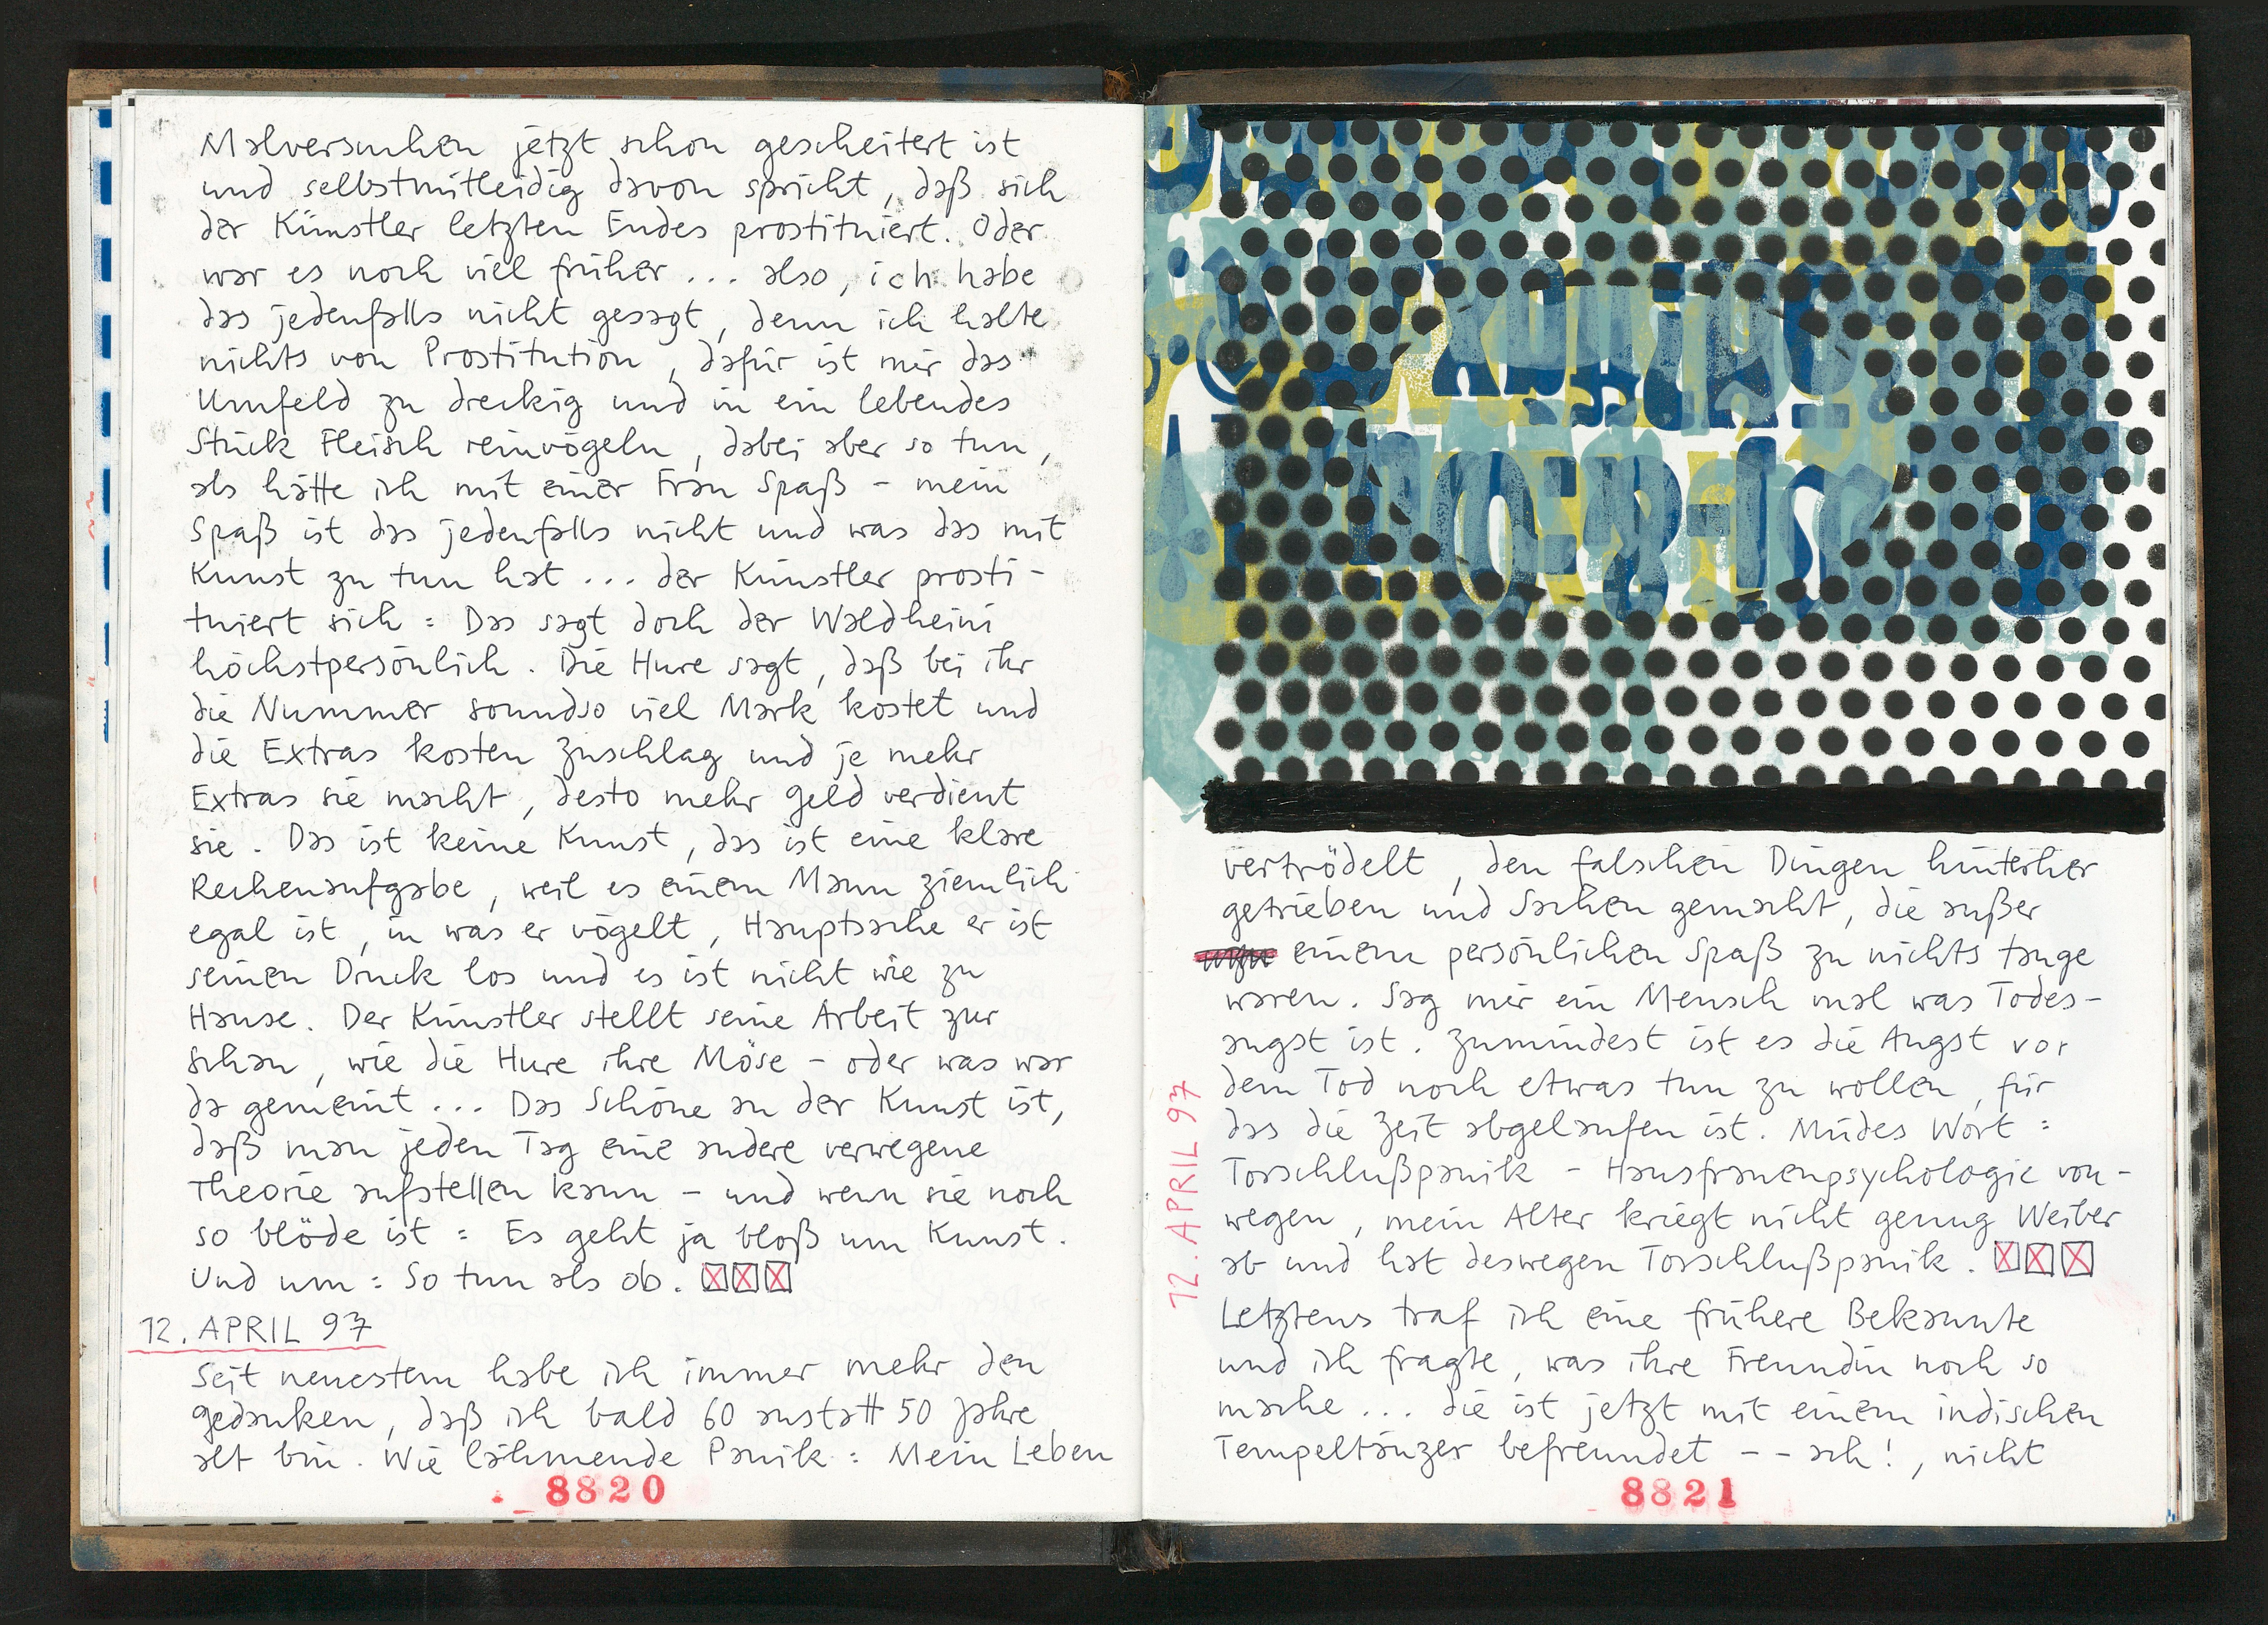 Malversuchen jetzt schon gescheitert ist
und selbstmitleidig davon spricht, daß sich
der Künstler letzten Endes prostituiert. Oder
war es noch viel früher ... also, ich habe
das jedenfalls nicht gesagt, denn ich halte
nichts von Prostitution, dafür ist mir das
Umfeld zu dreckig und in ein lebendes
Stück Fleisch reinvögeln, dabei aber so tun,
als hätte ich mit einer Frau Spaß - mein
Spaß ist das jedenfalls nicht und was das mit
Kunst zu tun hat ... der Künstler prosti-
tuiert sich : Das sagt doch der Waldheini
höchstpersönlich. Die Hure sagt, daß bei ihr
die Nummer soundso viel Mark kostet und
die Extras kosten Zuschlag und je mehr
Extras sie macht, desto mehr Geld verdient
sie. Das ist keine Kunst, das ist eine klare
Rechenaufgabe, weil es einem Mann ziemlich
egal ist, in was er vögelt, Hauptsache er ist
seinen Druck los und es ist nicht wie zu
Hause. Der Künstler stellt seine Arbeit zur
Schau, wie die Hure ihre Möse - oder was war
da gemeint ... Das Schöne an der Kunst ist,
daß man jeden Tag eine andere verwegene
Theorie aufstellen kann - und wenn sie noch
so blöde ist : Es geht ja bloß um Kunst.
Und um : So tun als ob. ☒☒☒
12. APRIL 97
Seit neuestem habe ich immer mehr den
Gedanken, daß ich bald 60 anstatt 50 Jahre
alt bin. Wie lähmende Panik : Mein Leben
8820
vertrödelt, den falschen Dingen hinterher
getrieben und Sachen gemacht, die außer
einem persönlichen Spaß zu nichts tauge
waren. Sag mir ein Mensch mal was Todes-
angst ist. Zumindest ist es die Angst vor
dem Tod noch etwas tun zu wollen, für
das die Zeit abgelaufen ist. Müdes Wort :
Torschlußpanik - Hausfrauenpsychologie von-
wegen, mein Alter kriegt nicht genug Weiber
ab und hat deswegen Torschlußpanik. ☒☒☒
12. APRIL 97
Letztens traf ich eine frühere Bekannte
und ich fragte, was ihre Freundin noch so
mache ... die ist jetzt mit einem indischen
Tempeltänzer befreundet -- ach!, nicht
8821